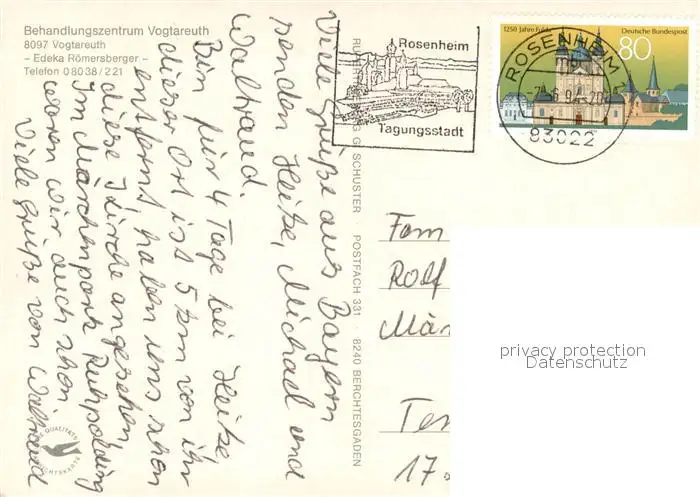 Behandlungszentrum Vogtareuth
8097 Vogtareuth
- Edeka Römersberger -
Telefon 08038/221
Rosenheim
Tagungsstadt
ROSENHEIM
83022
1250 Jahre Fulda
Deutsche Bundespost
80
Viele Grüße aus Bayern
senden Heike, Michael und
Waltraud.
Bin für 4 Tage bei Heike
dieser Ort ist 5 km von ihr
entfernt, haben uns schon
diese Kirche angesehen
Im Märchenpark Ruhpolding
waren wir auch schon
Viele Grüße von Waltraud
SCHUSTER · POSTFACH 331 · 8240 BERCHTESGADEN
Fam
Rolf
Mär
Tem
17
QUALITÄTS
privacy protection
Datenschutz